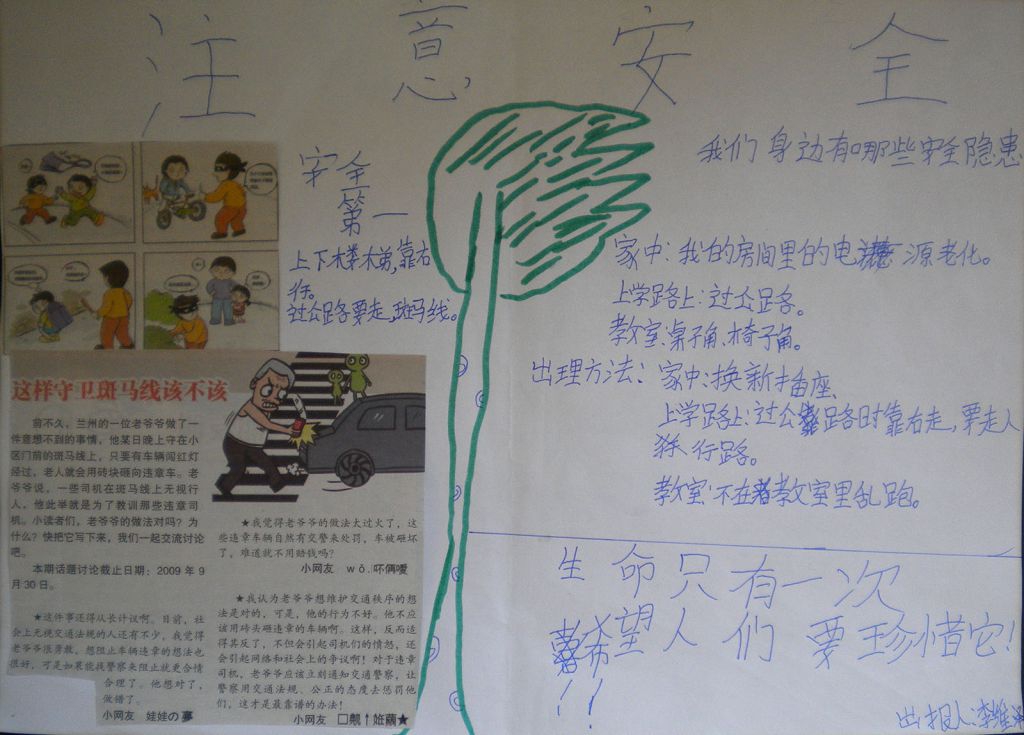 注意安全
安全
第一
上下木娄梯,靠右
行。
过公路要走,斑马线。
我们身边有哪些安全隐患
家中:我的房间里的电源老化。
上学路上:过公路。
教室:桌子角、椅子角。
出理方法:家中:换新插座
上学路上:过公路时靠右走,要走人
行路。
教室:不在教室里乱跑。
生命只有一次
希望人们要珍惜它!
!!
出报人:李维
这样守卫斑马线该不该
前不久,兰州的一位老爷爷做了一
件意想不到的事情,他某日晚上守在小
区门前的斑马线上,只要有车辆闯红灯
经过,老人就会用砖块砸向违章车。老
爷爷说,一些司机在斑马线上无视行
人,他此举就是为了教训那些违章司
机。小读者们,老爷爷的做法对吗?为
什么?快把它写下来,我们一起交流讨论
吧。
本期话题讨论截止日期:2009年9
月30日。
★这件事还得从长计议啊。目前,社
会上无视交通法规的人还有不少,我觉得
老爷爷很勇敢,想阻止车辆违章的想法也
很好,可是如果能找警察来阻止就更合情
合理了。他想对了,
做错了。
小网友 娃娃の夢
★我觉得老爷爷的做法太过火了,这
些违章车辆自然有交警来处罚,车被砸坏
了,难道就不用赔钱吗?
小网友 wǒ.吓俩嗳
★我认为老爷爷想维护交通秩序的想
法是对的,可是,他的行为不好。他不应
该用砖头砸违章的车辆啊。这样,反而适
得其反了,不但会引起司机们的愤怒,还
会引起网络和社会上的争议啊!对于违章
司机,老爷爷应该立刻通知交通警察,让
警察用交通法规、公正的态度去惩罚他
们,这才是最靠谱的办法!
小网友